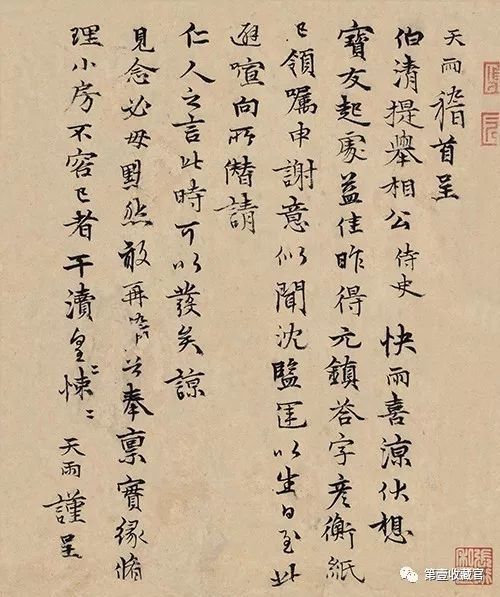 天雨稽首呈
伯清提舉相公侍史 快雨喜涼伏想
寶友起處益佳昨得元鎮荅字彥衡紙
已領囑申謝意似聞沈監運以生日至此
避喧向所僭請
仁人之言此時可以發矣諒
見念必毋默然敢再奉稟寶緣脩
理小房不容已者干瀆皇〻悚〻 天雨謹呈
第壹收藏官